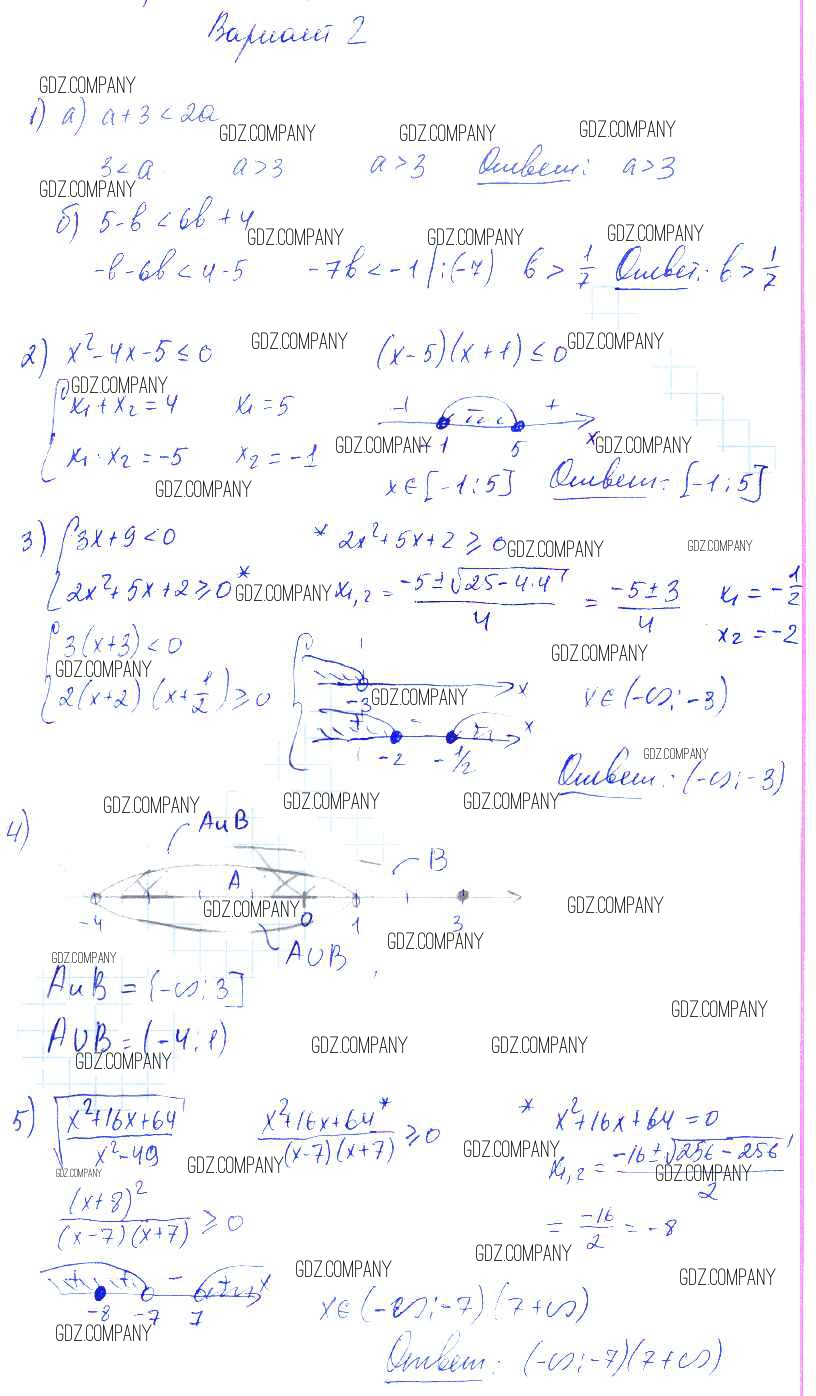 Вариант 2
GDZ.COMPANY
1) а) a+3<2a
GDZ.COMPANY GDZ.COMPANY GDZ.COMPANY
3<a a>3 a>3 Ответ: a>3
GDZ.COMPANY
б) 5-b<6b+4
GDZ.COMPANY GDZ.COMPANY GDZ.COMPANY
-b-6b<4-5 -7b<-1 |:(-7) b>1/7 Ответ: b>1/7
2) x²-4x-5≤0 GDZ.COMPANY (x-5)(x+1)≤0 GDZ.COMPANY
GDZ.COMPANY
x₁+x₂=4 x₁=5 +
GDZ.COMPANY -1 5 x GDZ.COMPANY
x₁·x₂=-5 x₂=-1
GDZ.COMPANY x∈[-1;5] Ответ: [-1;5]
3) {3x+9<0 * 2x²+5x+2≥0 GDZ.COMPANY GDZ.COMPANY
{2x²+5x+2≥0* GDZ.COMPANY x₁,₂=(-5±√(25-4·4))/4=(-5±3)/4 x₁=-1/2
x₂=-2
{3(x+3)<0 GDZ.COMPANY
GDZ.COMPANY
{2(x+2)(x+1/2)≥0 -3 GDZ.COMPANY x x∈(-∞;-3)
+ - x
-2 -1/2 GDZ.COMPANY
Ответ: (-∞;-3)
GDZ.COMPANY GDZ.COMPANY GDZ.COMPANY
4) AиB
A B
-4 GDZ.COMPANY 0 1 3 GDZ.COMPANY
GDZ.COMPANY
GDZ.COMPANY AUB
AиB = (-∞;3]
GDZ.COMPANY
AUB=(-4;1)
GDZ.COMPANY GDZ.COMPANY GDZ.COMPANY
5) √((x²+16x+64)/(x²-49)) (x²+16x+64*)/((x-7)(x+7))≥0 * x²+16x+64=0
GDZ.COMPANY GDZ.COMPANY GDZ.COMPANY
x₁,₂=(-16±√(256-256))/2
GDZ.COMPANY
(x+8)²/((x-7)(x+7))≥0 =-16/2=-8
GDZ.COMPANY
+ + - + x GDZ.COMPANY GDZ.COMPANY
-8 -7 7 x∈(-∞;-7)(7+∞)
GDZ.COMPANY
Ответ: (-∞;-7)(7+∞)